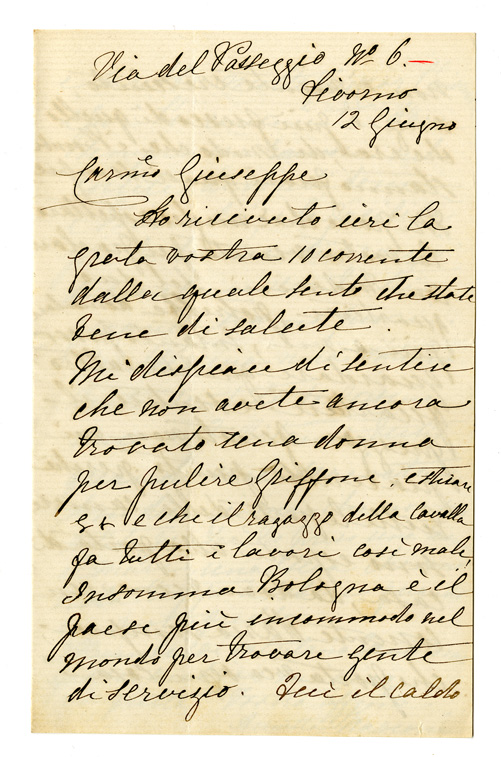 Via del Passeggio No 6.
Livorno
12 Giugno
Carmo Giuseppe
Ho ricevuto ieri la
grata vostra 10 corrente
dalla quale sento che state
bene di salute.
Mi dispiace di sentire
che non avete ancora
trovato una donna
per pulire Griffone, e stirare
&c e che il ragazzo della cavalla
fa tutti i lavori così male,
Insomma Bologna è il
paese più incommodo nel
mondo per trovare gente
di servizio. Qui il caldo